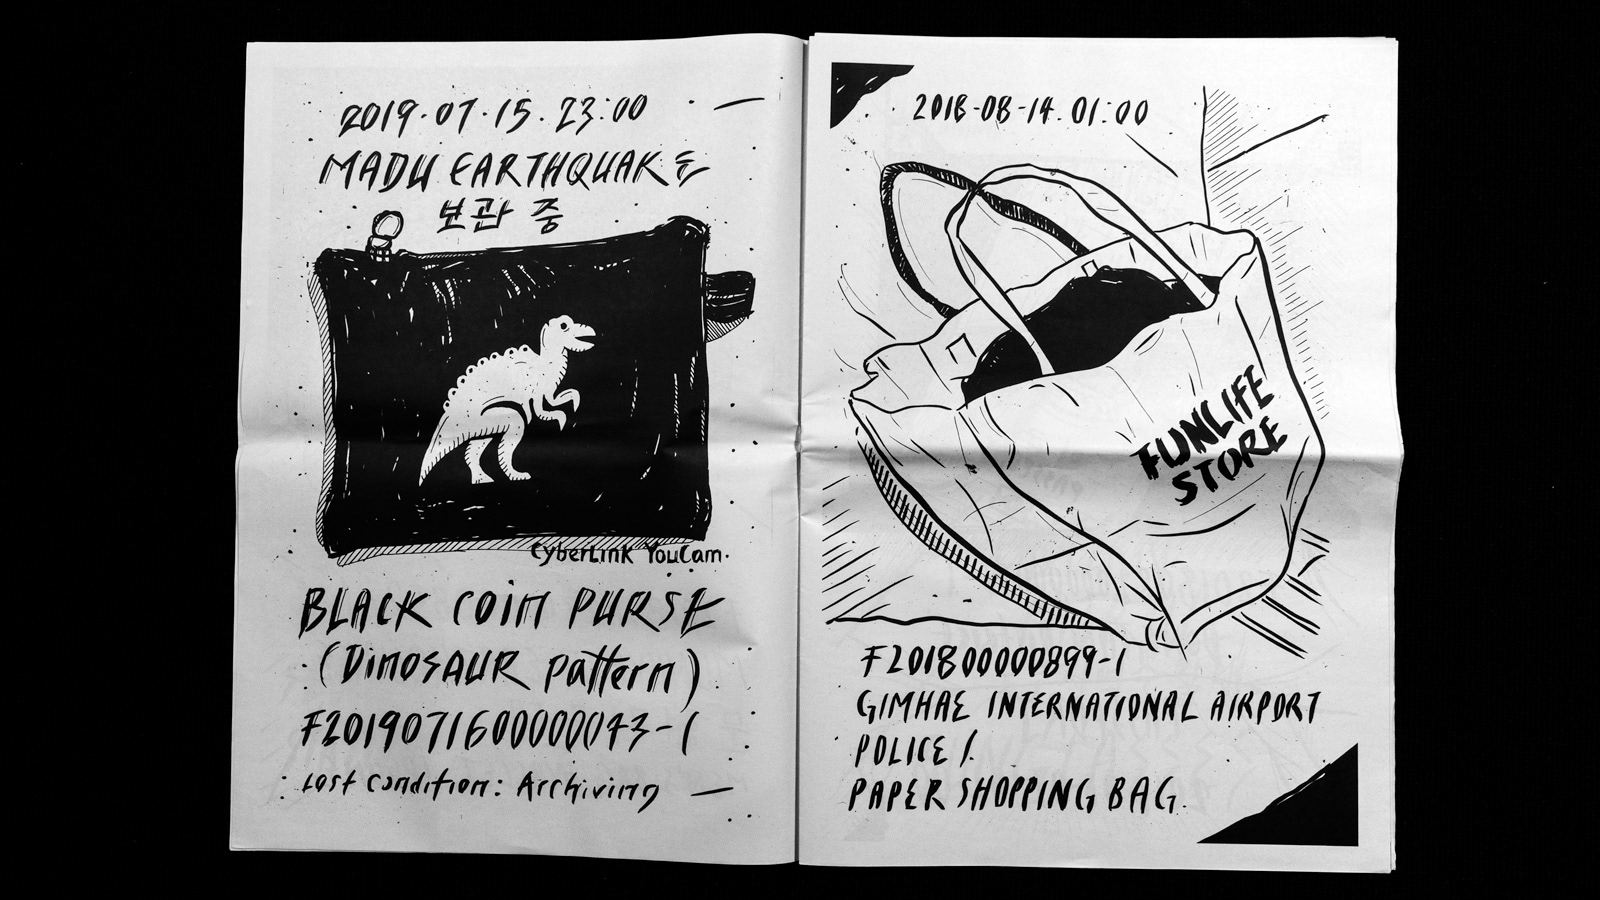 2019.07.15.23:00
MADU EARTHQUAKE
보관 중
CyberLink YouCam.
BLACK COIN PURSE
(DINOSAUR pattern)
F2019071600000073-1
Lost condition: Archiving
2018-08-14.01:00
FUNLIFE
STORE
F201800000899-1
GIMHAE INTERNATIONAL AIRPORT
POLICE /.
PAPER SHOPPING BAG.